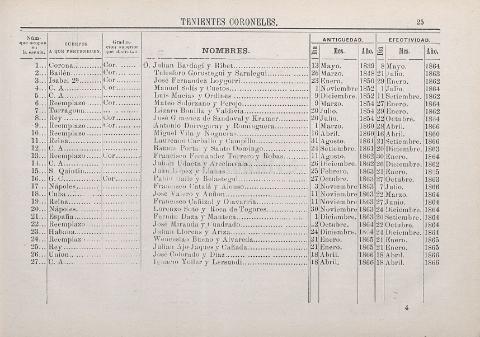 TENIENTES CORONELES. 25
ANTIGUEDAD. EFECTIVIDAD.
CUERPOS NOMBRES. Dia Mes. Año. Dia Mes. Año.
A QUE PERTENECEN.
1... Corona Cor. D. Julian Bardagi y Ribet 13 Mayo. 1839 8 Mayo. 1864
2... Bailén Cor. Telesforo Gorostegui y Saralegui 26 Marzo. 1848 21 Julio. 1863
3... Isabel 2ª Cor. José Fernandez Loygorri 23 Enero. 1850 29 Enero. 1862
4... C. A. Cor. Manuel Solis y Cuetos 1 Noviembre 1852 1 Julio. 1864
5... C. A. Luis Macías y Ordines 9 Diciembre. 1852 11 Setiembre. 1862
6... Reemplazo Cor. Mateo Solorzano y Perejo 9 Marzo. 1854 27 Enero. 1864
7... Tarragona Lázaro Bonilla y Valdivia 20 Julio. 1854 29 Enero. 1862
8... Rey Cor. José Gimenez de Sandoval y Kramer 20 Julio. 1854 22 Octubre. 1864
9... Reemplazo Cor. Antonio Dorregaray y Romoguera 1 Marzo. 1860 28 Abril. 1866
10... Reemplazo Miguel Vila y Nogueras 16 Abril. 1860 16 Abril. 1860
11... Reina Laureano Carballo y Campillo 31 Agosto. 1861 31 Setiembre. 1866
12... C. A. Ramon Portal y Santo Domingo 24 Setiembre 1861 26 Diciembre. 1863
13... Reemplazo Cor. Francisco Fernandez Torrero y Robas 11 Agosto. 1862 30 Enero. 1864
14... C. A. Joaquin Udaeta y Arechavala 26 Diciembre 1862 26 Diciembre. 1862
15... S. Quintin Juan Lopez y Llanas 25 Febrero. 1863 21 Enero. 1865
16... G. C. Cor. 27 Octubre. 1863 27 Octubre. 1863
17... Nápoles Francisco Catalá y Alonso 3 Noviembre 1863 7 Julio. 1866
18... Cuba José Valero y Añon 11 Noviembre 1863 22 Marzo. 1864
19... Reina Francisco Cañizal y Olavarria 11 Noviembre 1863 27 Junio. 1864
20... Nápoles Lorenzo Soto y Roca de Togores 30 Noviembre 1863 24 Diciembre. 1864
21... España Fermin Daza y Mantera 1 Diciembre. 1863 30 Setiembre. 1864
22... Reemplazo José Miranda y Cuadrado 2 Octubre. 1864 22 Octubre. 1864
23... Habana Julian Llorens y Ariza 24 Diciembre. 1864 24 Diciembre. 1864
24... Reemplazo Wenceslao Bueno y Alvareda 31 Enero. 1865 21 Enero. 1865
25... Rey Julian Ajo Jaques y Cañada 21 Enero. 1865 21 Enero. 1865
26... Union José Colorado y Diaz 18 Abril. 1866 18 Abril. 1866
27... C. A. Ignacio Yoller y Lersundi 18 Abril. 1866 18 Abril. 1866
4